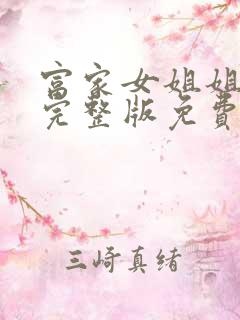 富家女姐姐
完整版免费
三崎真绪